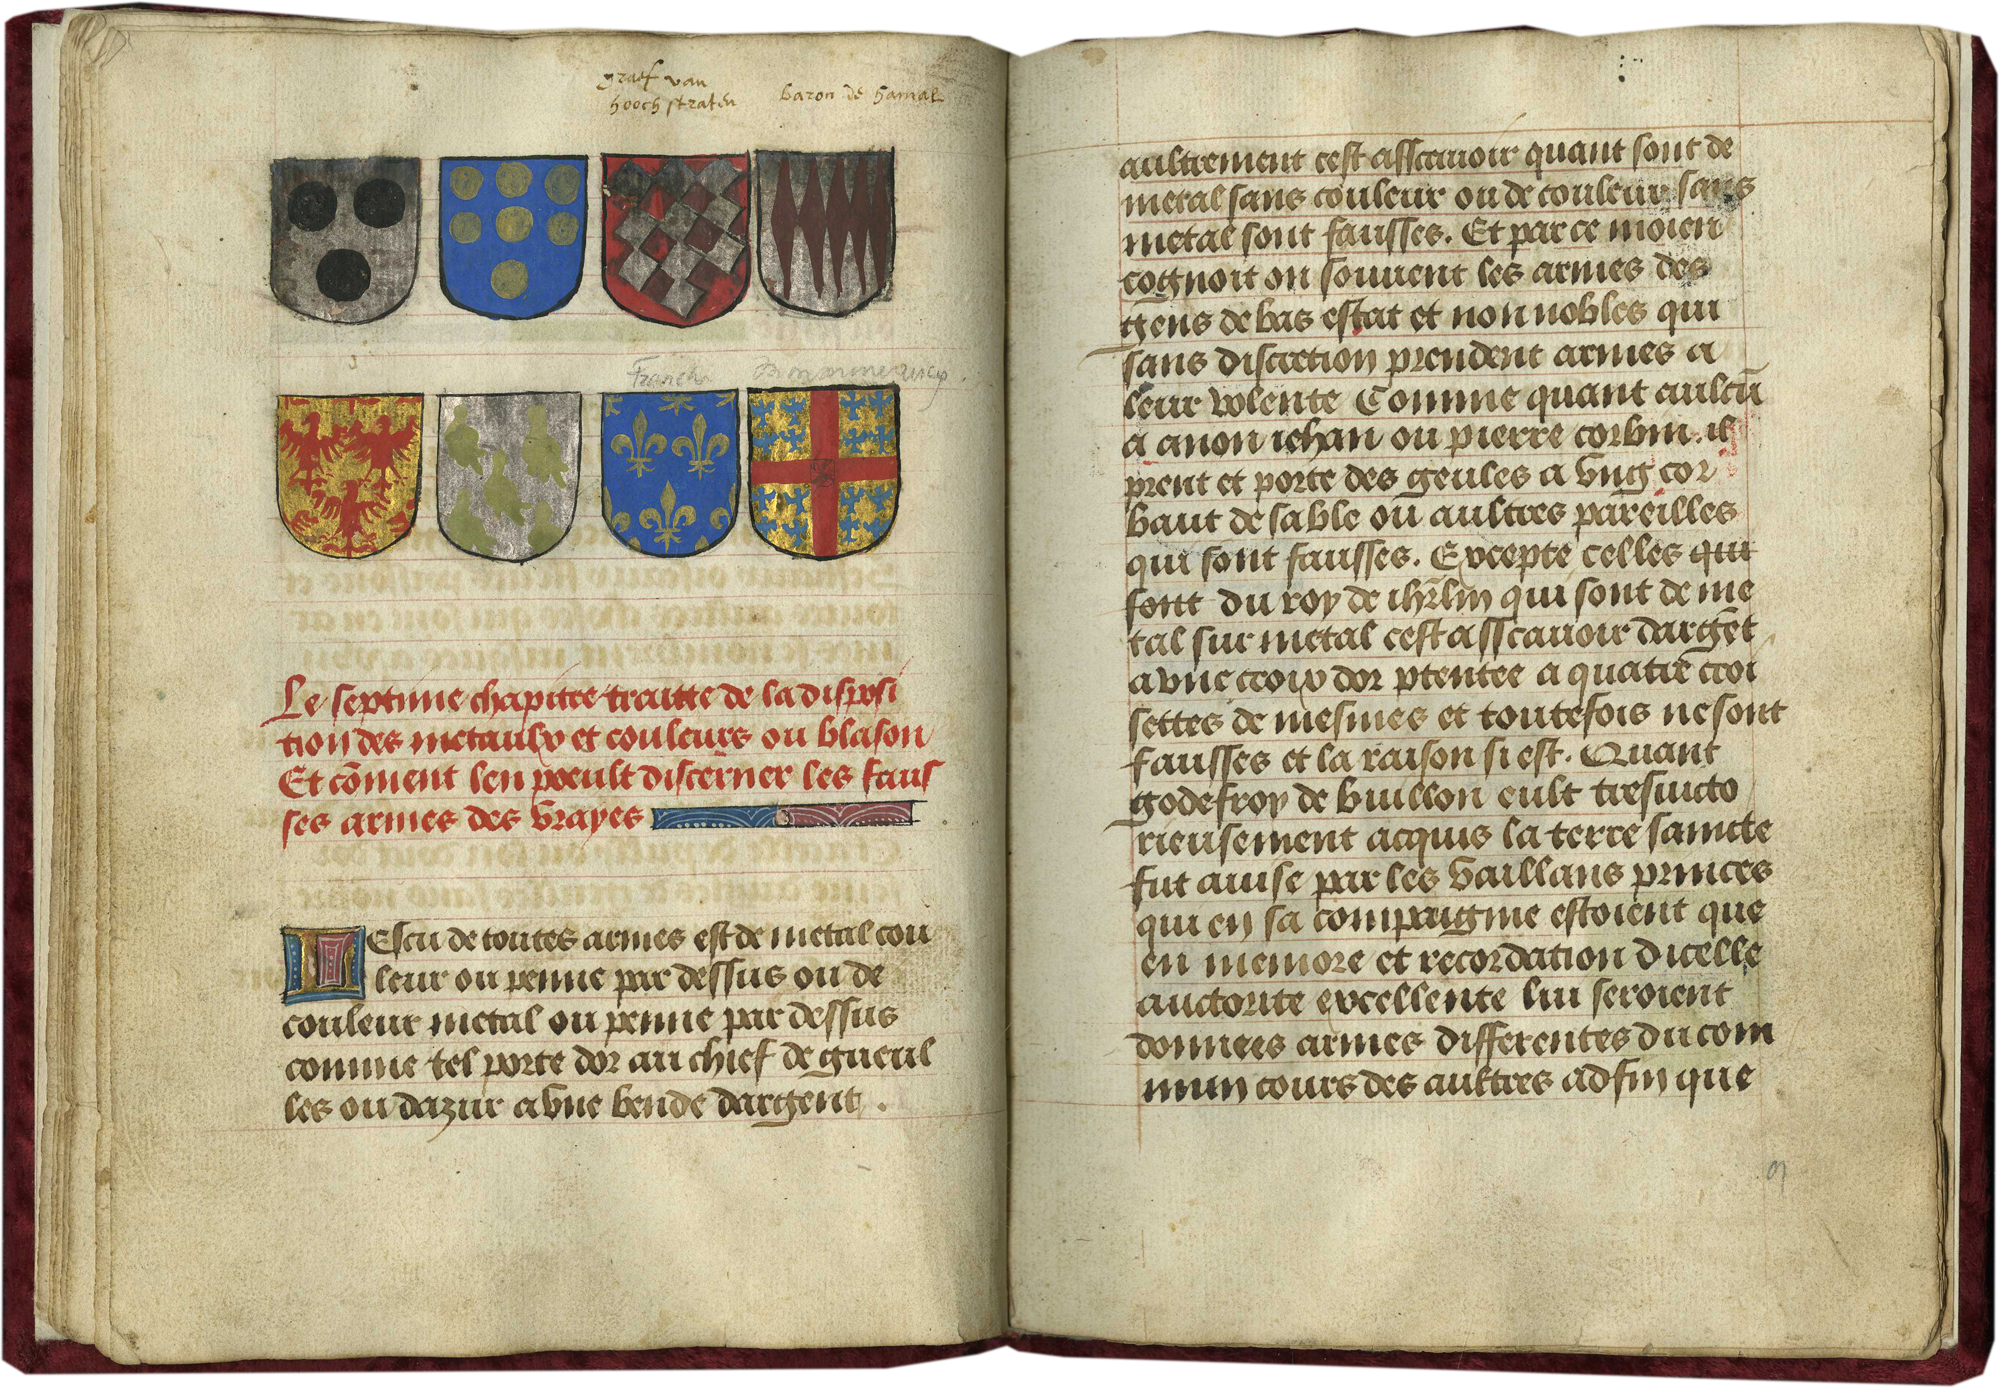 graef van
hoochstraten
baron de hamal
Franch
Le septime chapitre traitte de la disposi
tion des metaulx et couleurs ou blason
Et cōment len poeult discerner les faus
ses armes des vrayes
LEscu de toutes armes est de metal cou
leur ou penne par dessus ou de
couleur metal ou penne par dessus
comme tel porte dor au chief de gueul
les ou dazur a vne bende dargent .
aultrement cest asscauoir quant sont de
metal sans couleur ou de couleur sans
metal sont fausses. Et par ce moien
cognoit on souuent les armes des
gens de bas estat et non nobles qui
sans discretion prendent armes a
leur volente Comme quant aulcū
a a non iehan ou pierre corbin. il
prent et porte des geules a vng cor
baut de sable ou aultres pareilles
qui sont fausses. Excepte celles qui
sont du roy de ihrl̄m qui sont de me
tal sur metal cest asscauoir dargēt
a vne croix dor ptentee a quatrē croi
settes de mesmes et toutefois ne sont
fausses et la raison si est. Quant
godefroy de buillon eult tresuicto
rieusement acquis la terre saincte
fut auise par les vaillans princes
qui en sa compaignie estoient que
en memore et recordation dicelle
auctorite excellente lui seroient
donnees armes differentes du com
mun cours des aultres ad fin que
9